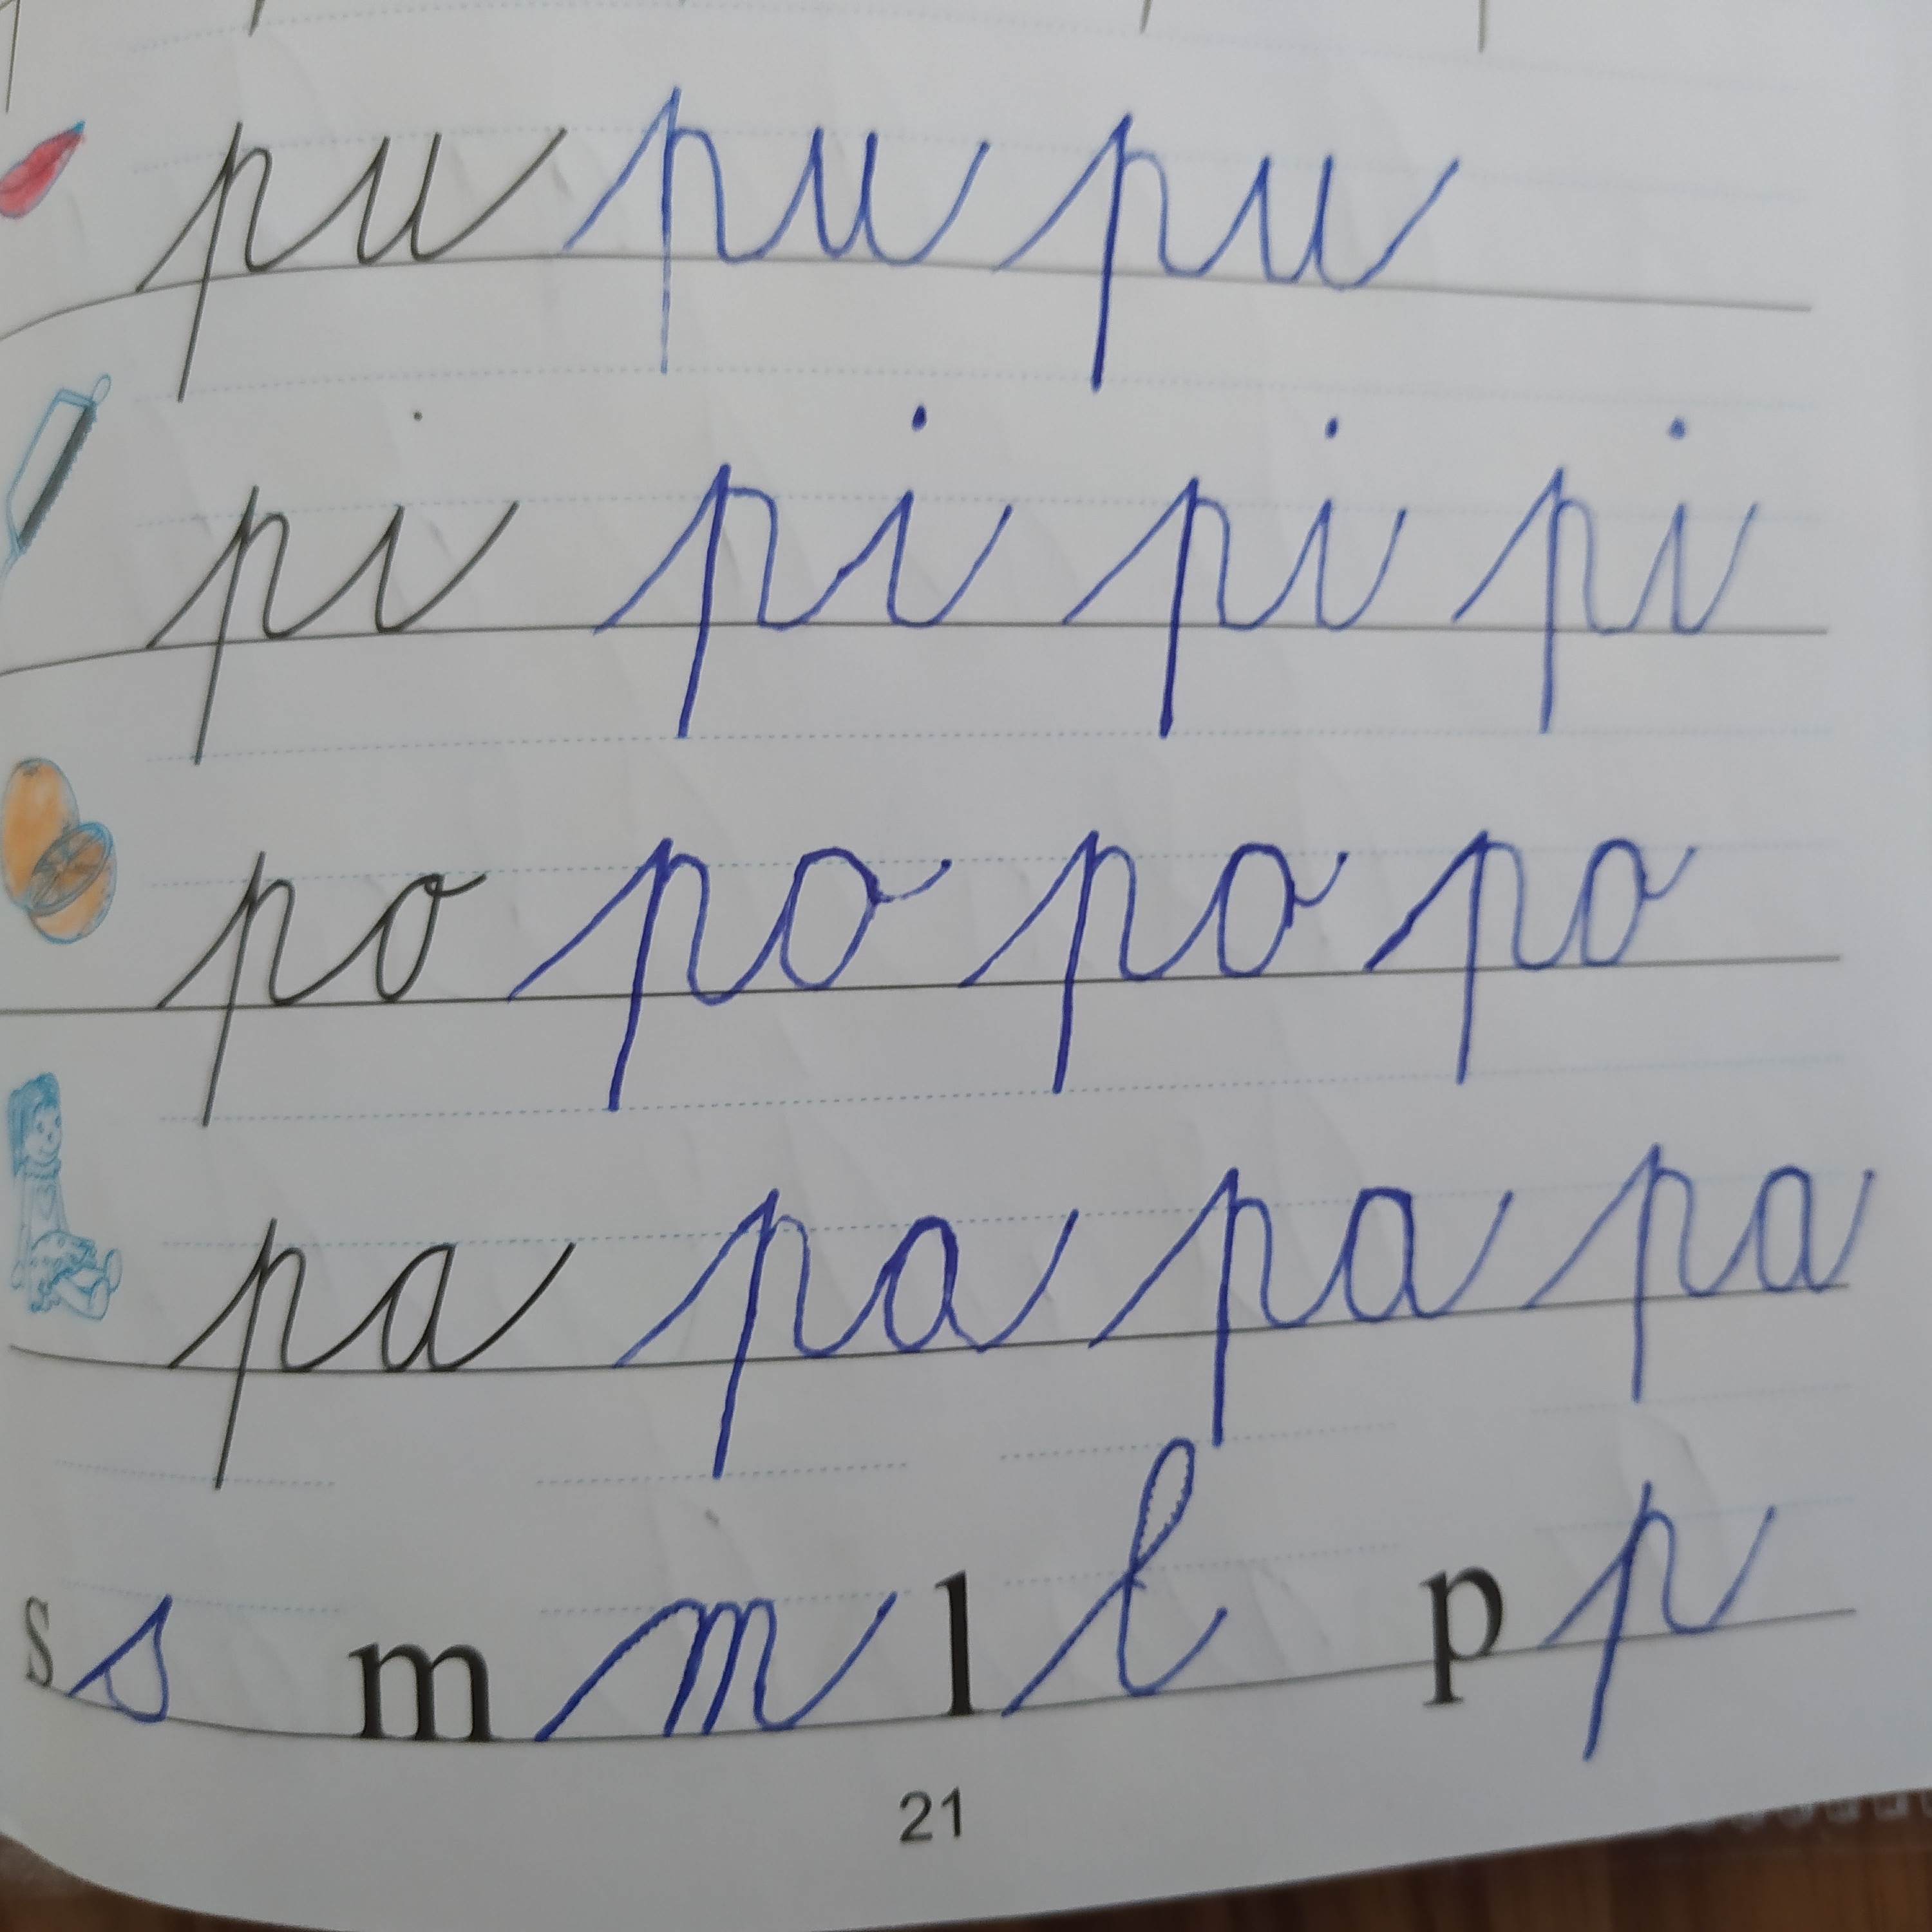 pu pu pu
pi pi pi pi
po po po po
pa pa pa pa
s s m m l l p p
21